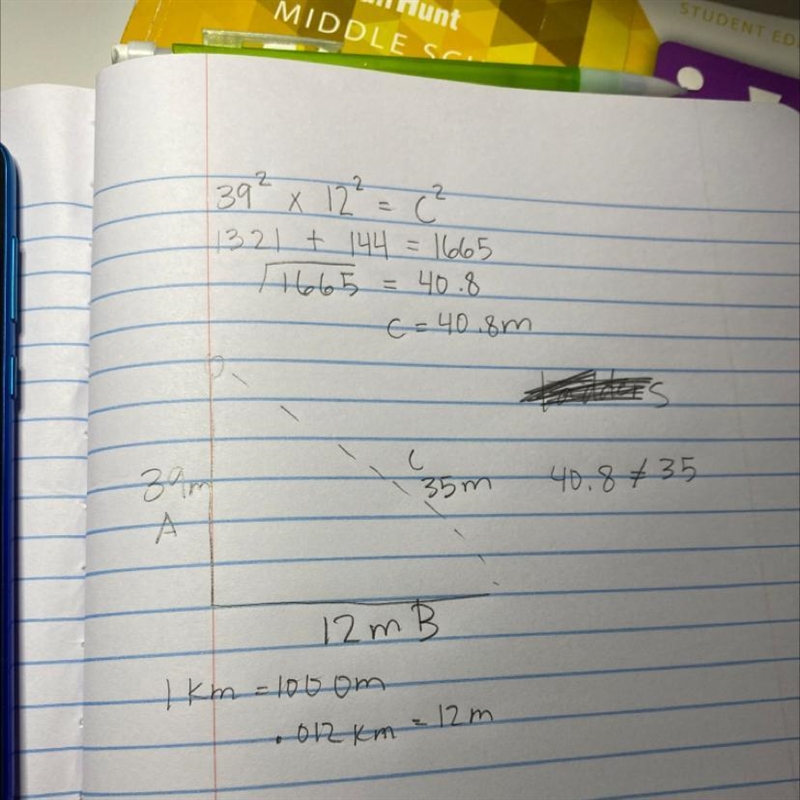 Hunt
MIDDLE SC
STUDENT ED
39² x 12² = C²
1321 + 144 = 1665
√1665 = 40.8
C = 40.8m
39m
A
C
35m
40.8 ≠ 35
12m B
1 km = 1000m
.012 km = 12m